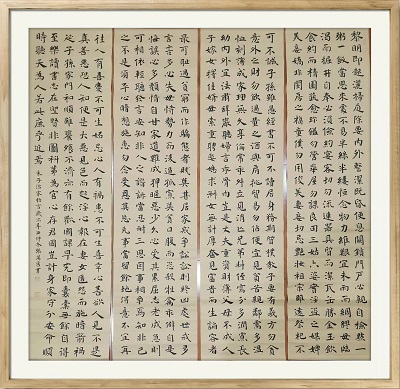 黎明即起灑掃庭除要內外整潔既昏便息關鎖門戶必親自檢點一
粥一飯當思來處不易半絲半縷恆念物力維艱宜未雨而綢繆毋臨
渴而掘井自奉必須儉約宴客切勿流連器具質而潔瓦缶勝金玉飲
食約而精園蔬愈珍饈勿營華屋勿謀良田三姑六婆實淫盜之媒婢
美妾嬌非閨房之福童僕勿用俊美妻妾切忌艷妝祖宗雖遠祭祀不
可不誠子孫雖愚經書不可不讀居身務期質樸教子要有義方勿貪
意外之財勿飲過量之酒與肩挑貿易勿佔便宜見貧苦親鄰須多溫
恤刻薄成家理無久享倫常乖舛立見消亡兄弟叔侄須分多潤寡長
幼內外宜法肅辭嚴聽婦言乖骨肉豈是丈夫重資財薄父母不成人
子嫁女擇佳婿毋索重聘娶媳求淑女毋計厚奩見富貴而生諂容者
最可恥遇貧窮而作驕態者賤莫甚居家戒爭訟訟則終凶處世戒多
言言多必失毋恃勢力而凌逼孤寡勿貪口腹而恣殺牲禽乖僻自是
悔誤必多頹惰自甘家道難成狎暱惡少久必受其累屈志老成急則
可相依輕聽發言安知非人之譖訴當忍耐三思因事相爭安知非己
之不是須平心暗想施惠勿念受恩莫忘凡事當留餘地得意不宜再
往人有喜慶不可生妒忌心人有禍患不可生喜幸心善欲人見不是
真善惡恐人知便是大惡見色而起淫心報在妻女匿怨而用暗箭禍
延子孫家門和順雖饔飧不濟亦有餘歡國課早完即囊橐無餘自得
至樂讀書志在聖賢非徒科第為官心存君國豈計身家守分安命順
時聽天為人若此庶乎近焉
朱子治家格言